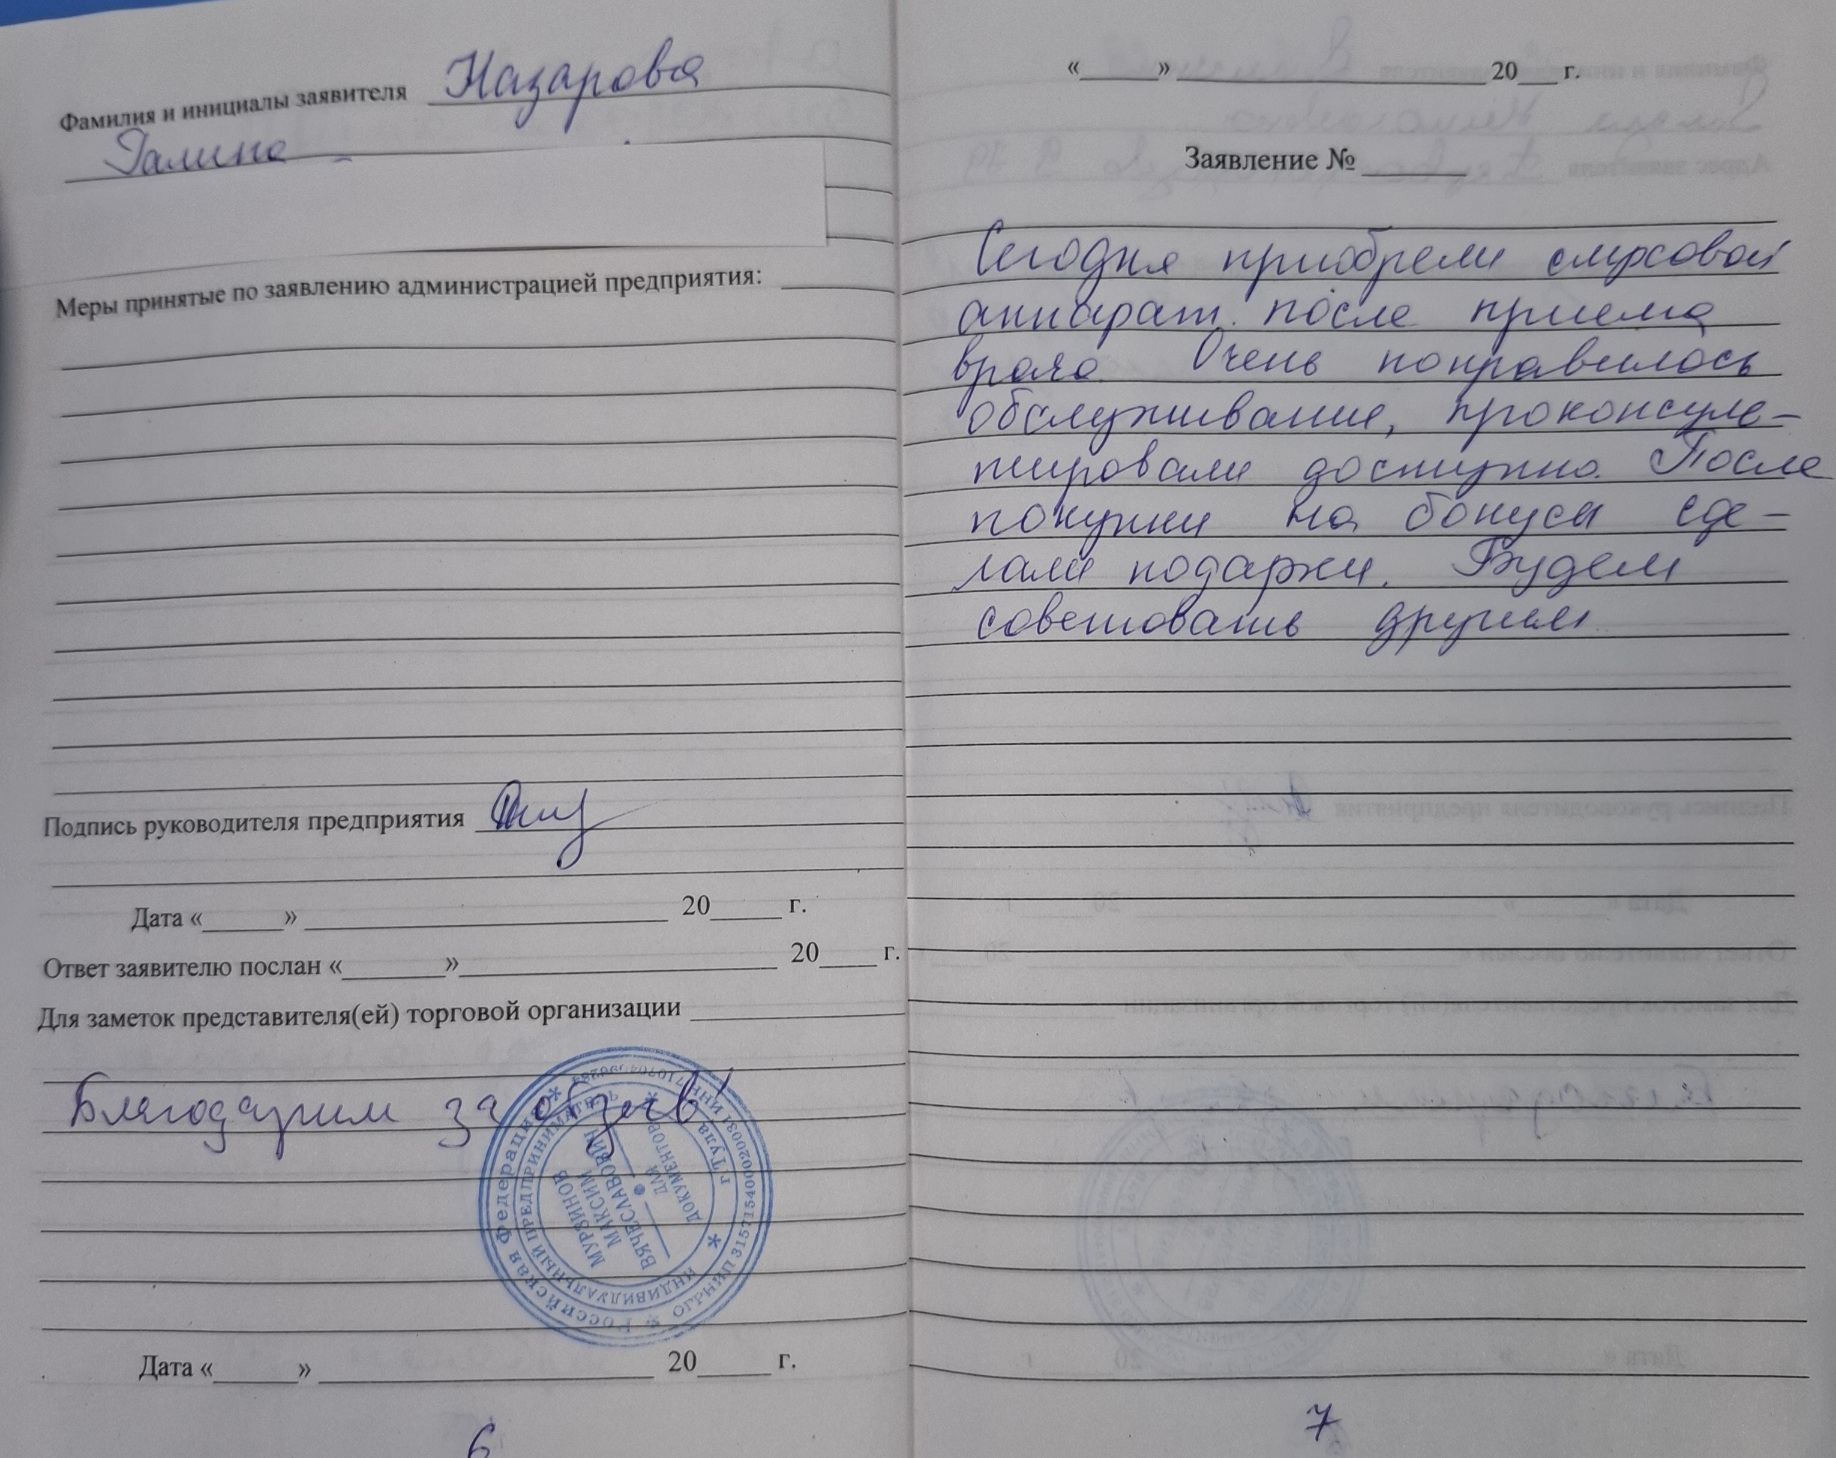 Фамилия и инициалы заявителя Назарова
Галина
Меры принятые по заявлению администрацией предприятия:
Подпись руководителя предприятия
Дата «______» ______ 20____ г.
Ответ заявителю послан «______»______ 20____ г.
Для заметок представителя(ей) торговой организации
Благодарим за отзыв!
Российская Федерация
г. Тула
ИНДИВИДУАЛЬНЫЙ ПРЕДПРИНИМАТЕЛЬ
МУРЗИНОВ
МАКСИМ
ВЯЧЕСЛАВОВИЧ
ДЛЯ
ДОКУМЕНТОВ
Дата «______» ______ 20____ г.
6
«______» ______ 20___ г.
Заявление № ______
Сегодня приобрели слуховой
аппарат после приема
врача. Очень понравилось
обслуживание, проконсуль-
тировали доступно. После
покупки на бонусы сде-
лали подарки. Будем
советовать другим
7